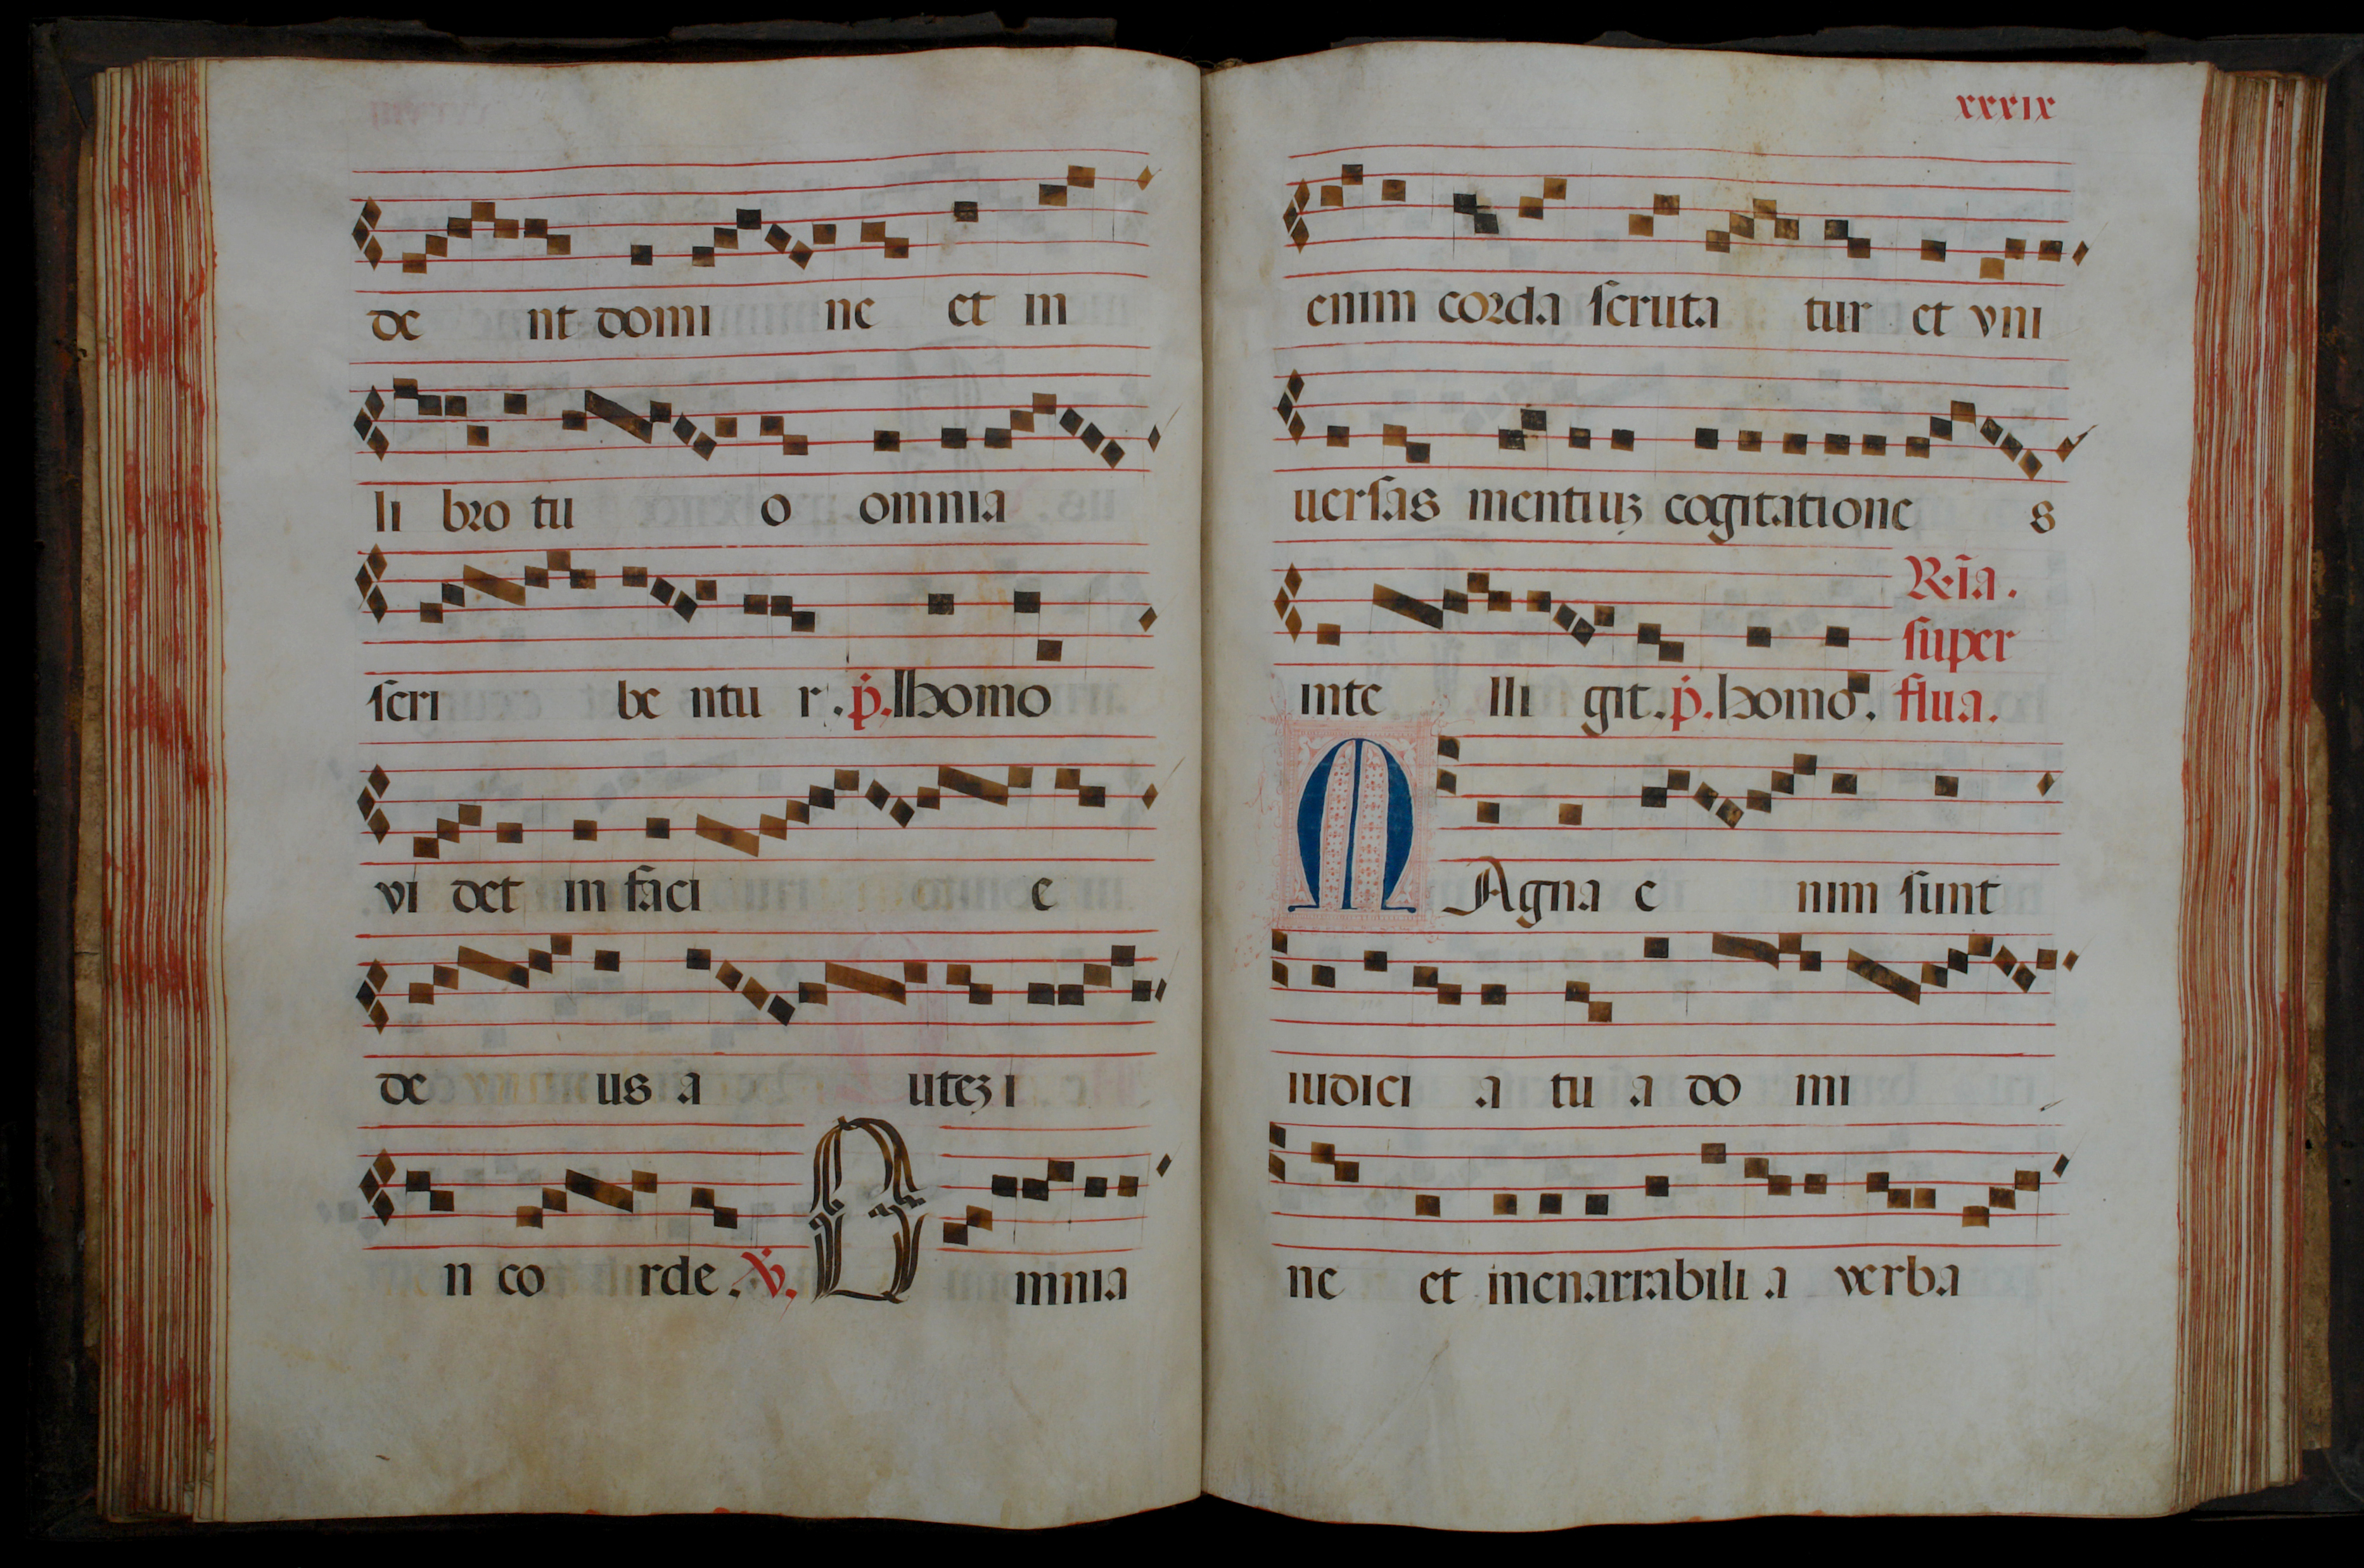 de nt domi ne et in
li bro tu o omnia
scri be ntu r. p. Homo
vi det in faci e
de us a utez i
n co rde. V. O mnia
xxxix
enim corda scruta tur et vni
uersas mentiuz cogitatione s
inte lli git. p. homo.
R. ia.
super
flua.
M Agna e nim sunt
iudici a tu a do mi
ne et inenarrabili a verba